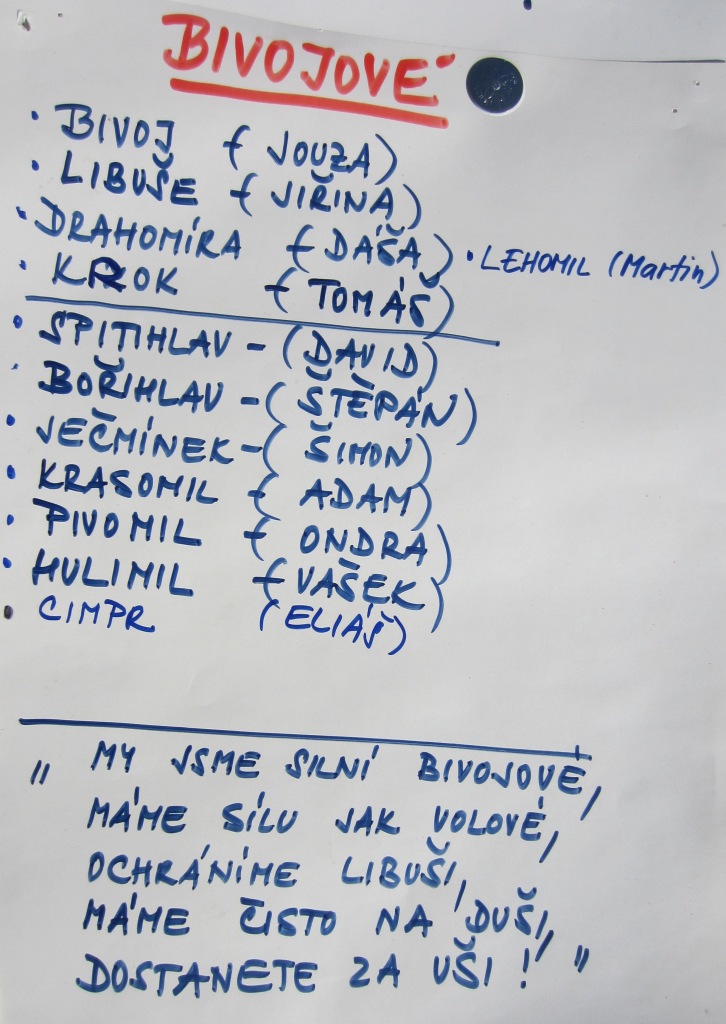 BIVOJOVÉ
• BIVOJ - (JOUZA)
• LIBUŠE - (JIŘINA)
• DRAHOMÍRA - (DÁŠA) • LEHOMIL (Martin)
• KROK - (TOMÁŠ)
• SPITIHLAV - (DAVID)
• BOŘIHLAV - (ŠTĚPÁN)
• JEČMÍNEK - (ŠIMON)
• KRASOMIL - (ADAM)
• PIVOMIL - (ONDRA)
• HULIMIL - (VAŠEK)
• CIMPR (ELIÁŠ)
" MY JSME SILNÍ BIVOJOVÉ,
MÁME SÍLU JAK VOLOVÉ,
OCHRÁNÍME LIBUŠI,
MÁME ČISTO NA DUŠI,
DOSTANETE ZA UŠI! "